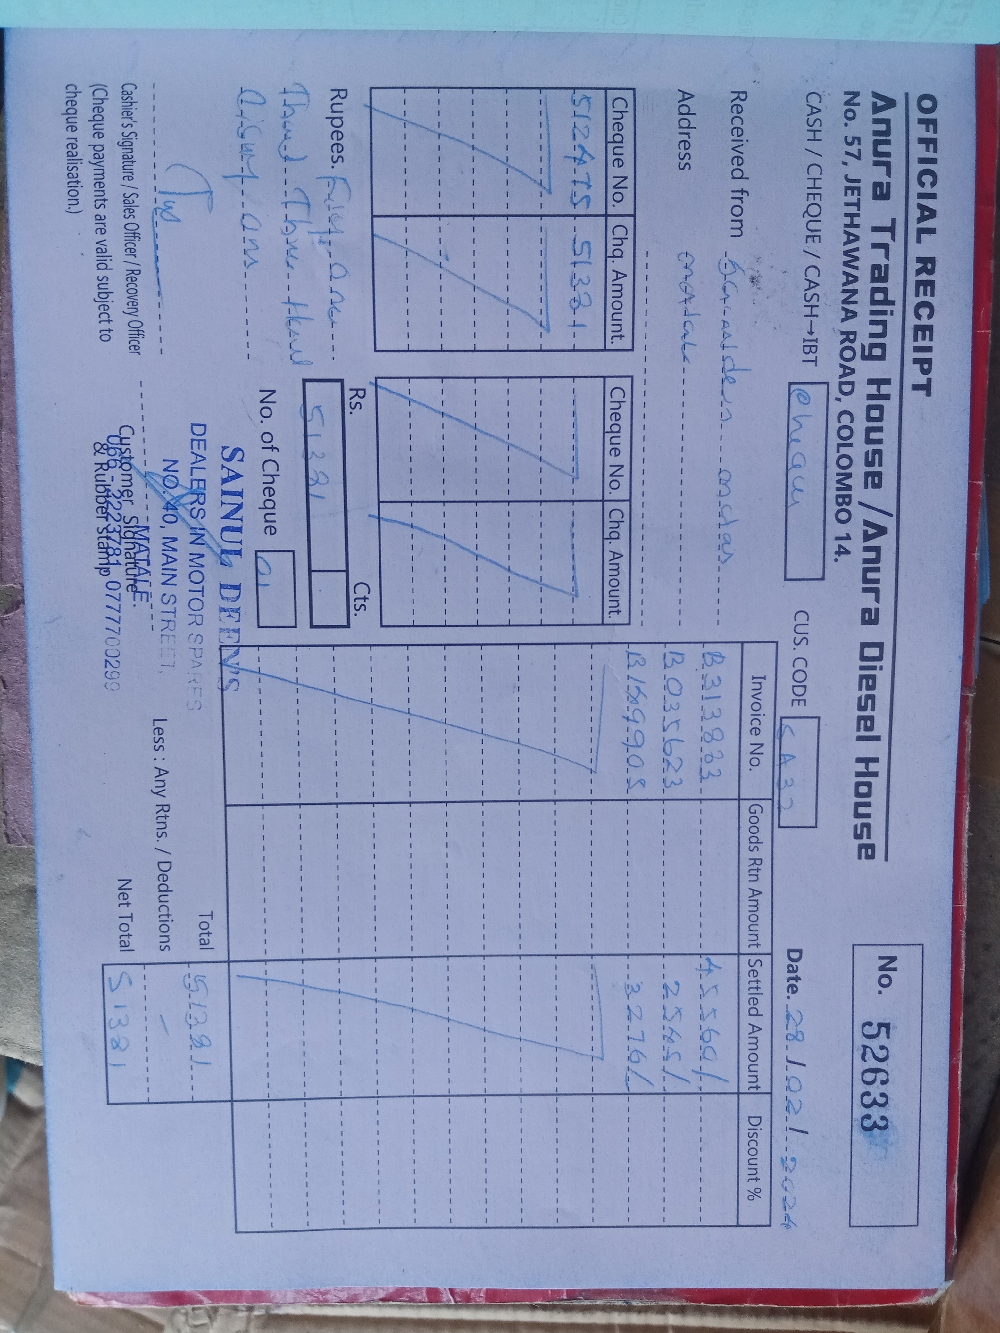 OFFICIAL RECEIPT
Anura Trading House / Anura Diesel House
No. 57, JETHAWANA ROAD, COLOMBO 14.
No. 52633
CASH / CHEQUE / CASH→IBT
CUS. CODE
Date. 28/02/2024
Received from
Address
Cheque No. Chq. Amount. Cheque No. Chq. Amount.
512475 51381
Invoice No. Goods Rtn Amount Settled Amount Discount %
B313883 45560/
B035623 2545/
3276/
Rupees.
Rs. Cts.
51381
No. of Cheque 01
SAINUL DEEN'S
DEALERS IN MOTOR SPARES
NO. 40, MAIN STREET,
MATALE.
066 - 2223781, 0777700299
Total 51381
Less : Any Rtns / Deductions –
Net Total 51381
Cashier's Signature / Sales Officer / Recovery Officer
(Cheque payments are valid subject to
cheque realisation.)
Customer Signature
& Rubber Stamp